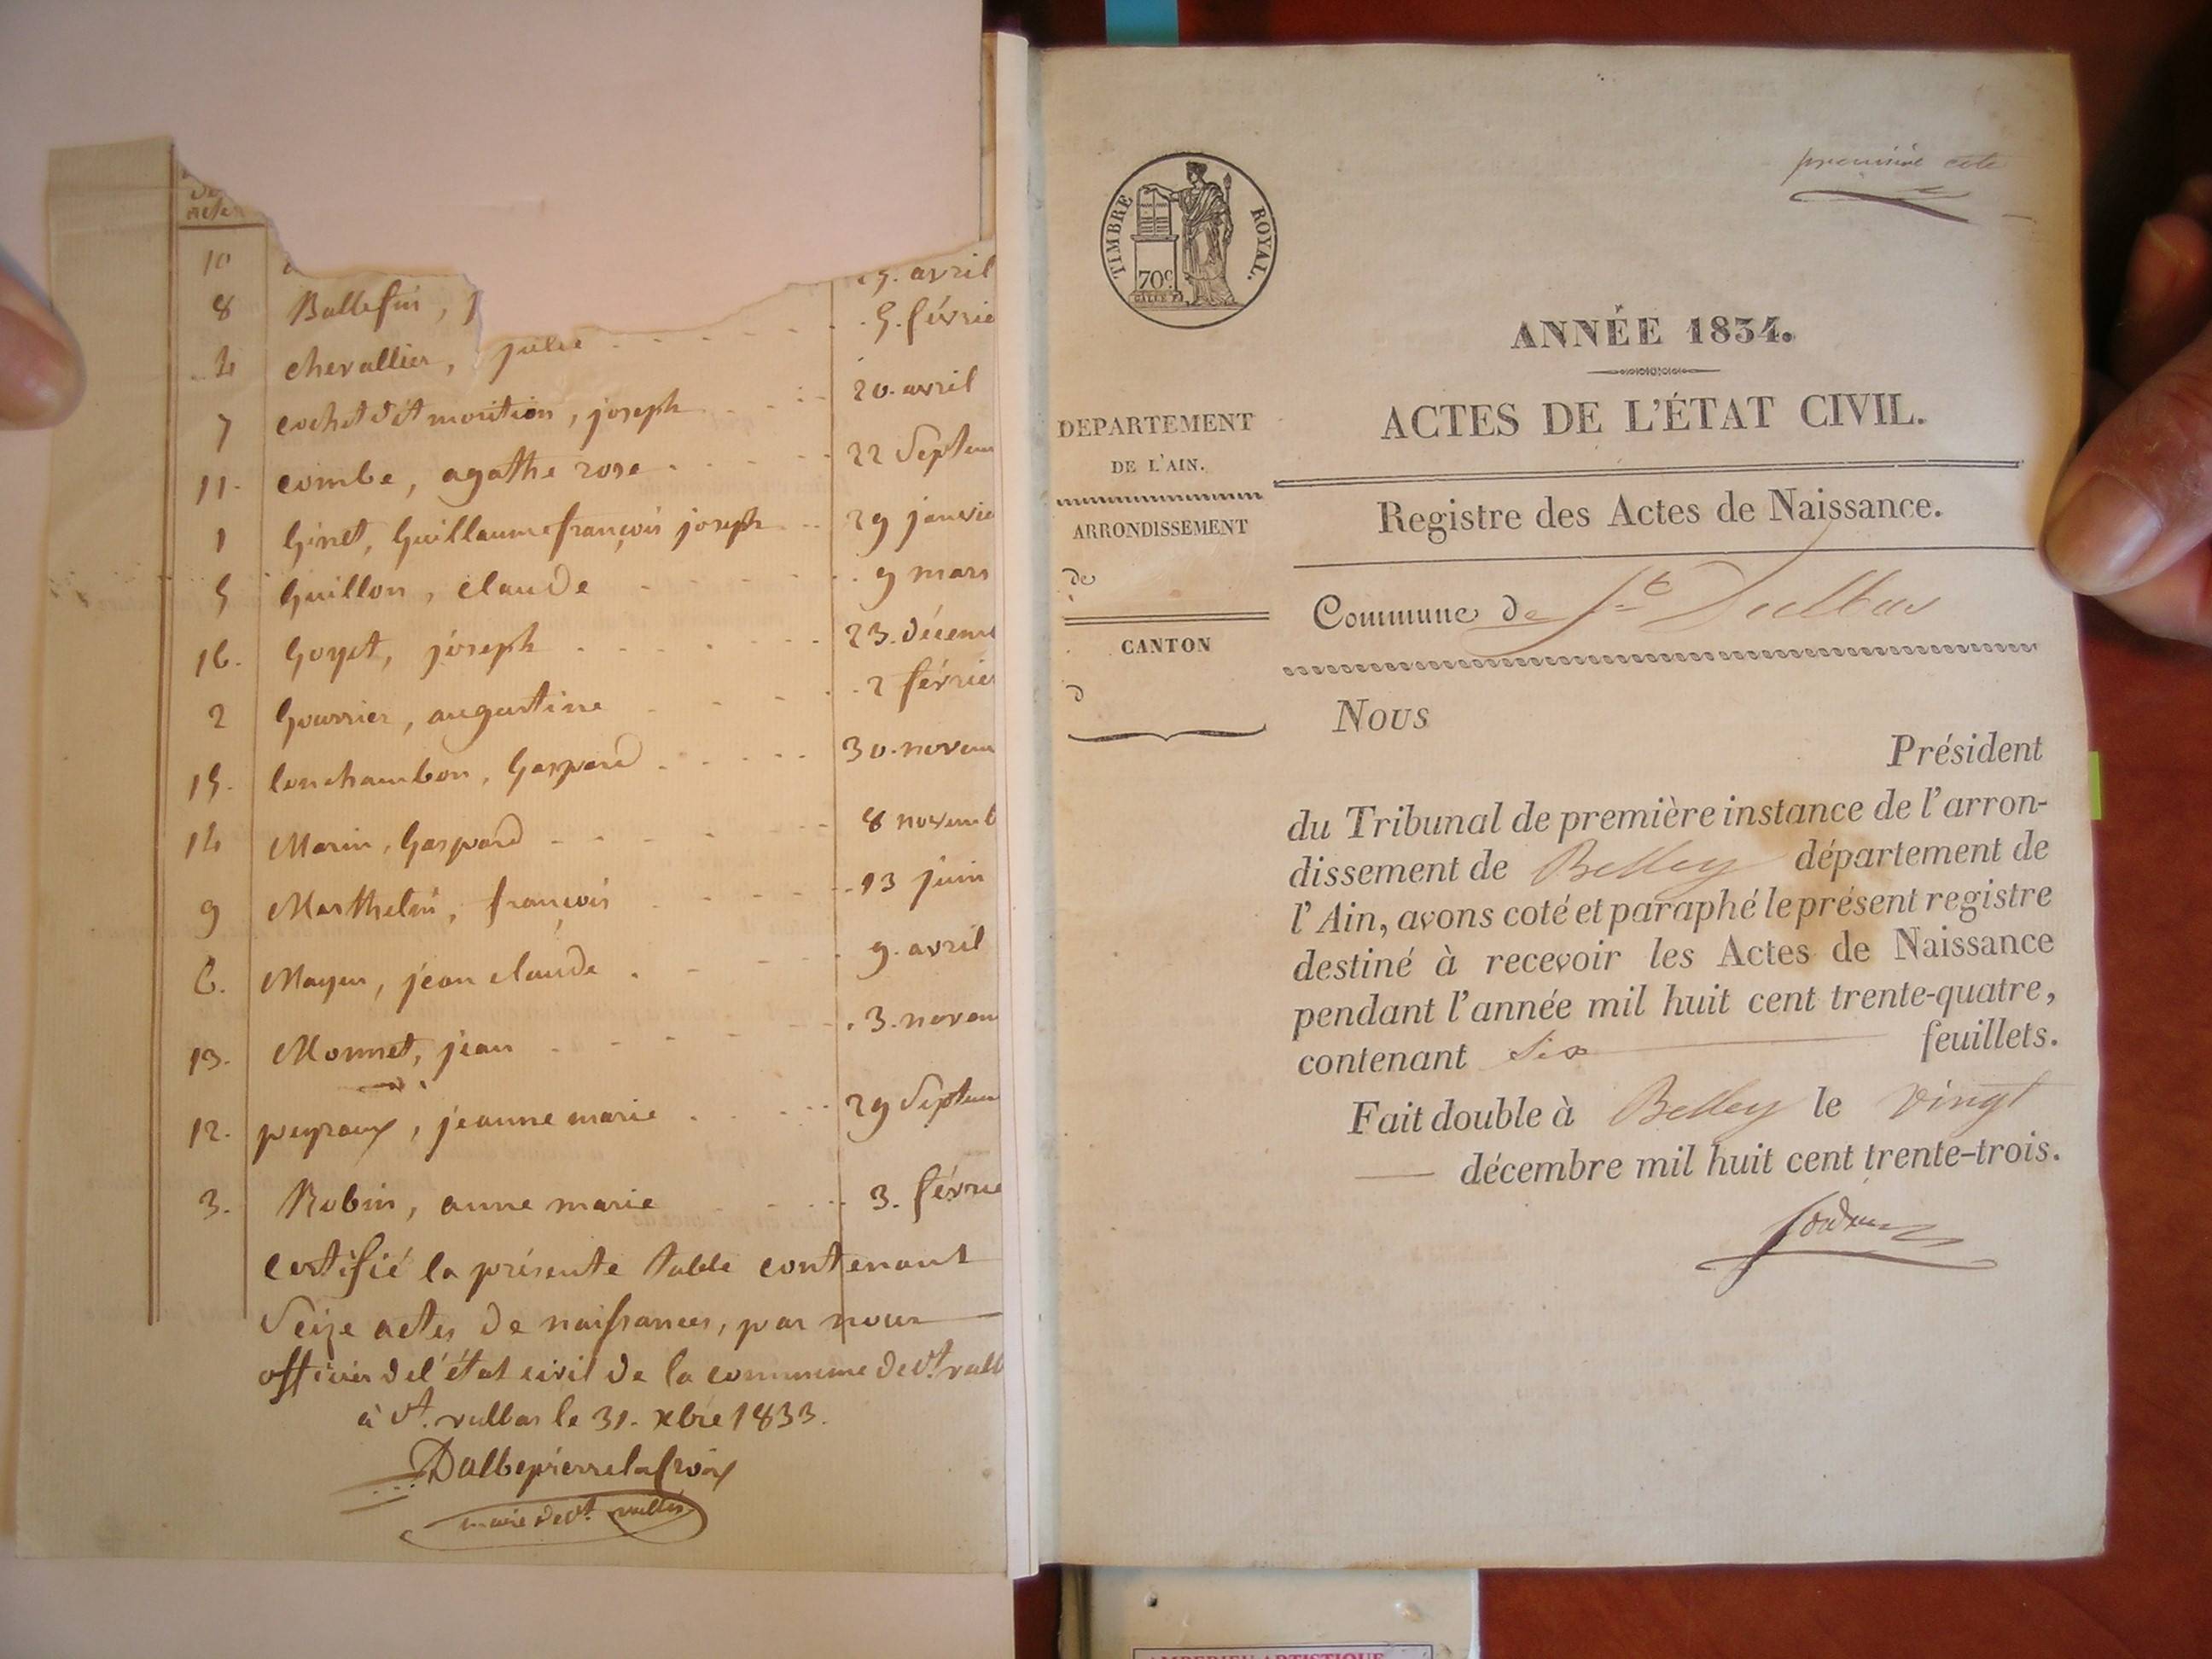 de
actes
10 25. avril
8 Ballefin, j
4 chevallier, julie 5. févrie
7 cochet dit moution, joseph 20. avril
11. combe, agathe rose 22 septem
1 Ginet, Guillaume françois joseph 29 janvie
5 Guillon, claude 9 mars
16. Goyet, joseph 23. décem
2 Gourrier, augustine 2 févrie
15. lonchambon, Gaspard 30. novem
14 Marin, Gaspard 8 novemb
9 Marthelin, françois 13 juin
6. Mayeu, jean claude 9. avril
13. Monnet, jean 3. novem
12. peyraux, jeanne marie 29 septem
3. Robin, anne marie 3. févrie
certifié la présente table contenant
Seize actes de naissances, par nous
officier de l'état civil de la commune de St. vulb
à St. vulbas le 31. xbre 1833.
Dalbepierre lacroix
maire de St. vulbas
première cote
TIMBRE ROYAL.
70c.
ANNÉE 1834.
ACTES DE L'ÉTAT CIVIL.
Registre des Actes de Naissance.
DEPARTEMENT
DE L'AIN.
ARRONDISSEMENT
de
CANTON
d
Commune de St Vulbas
Nous
Président
du Tribunal de première instance de l'arron-
dissement de Belley département de
l'Ain, avons coté et paraphé le présent registre
destiné à recevoir les Actes de Naissance
pendant l'année mil huit cent trente-quatre,
contenant six feuillets.
Fait double à Belley le vingt
décembre mil huit cent trente-trois.
AMBERIEU ARTISTIQUE